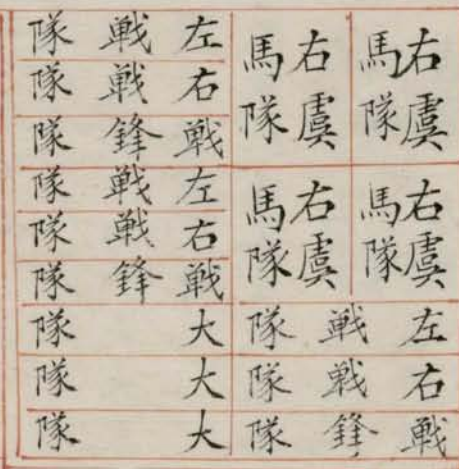 右虞馬隊
右虞馬隊
右虞馬隊
右虞馬隊
左戦隊
右戦隊
戦鋒隊
左戦隊
右戦隊
戦鋒隊
左戦隊
右戦隊
戦鋒隊
大隊
大隊
大隊